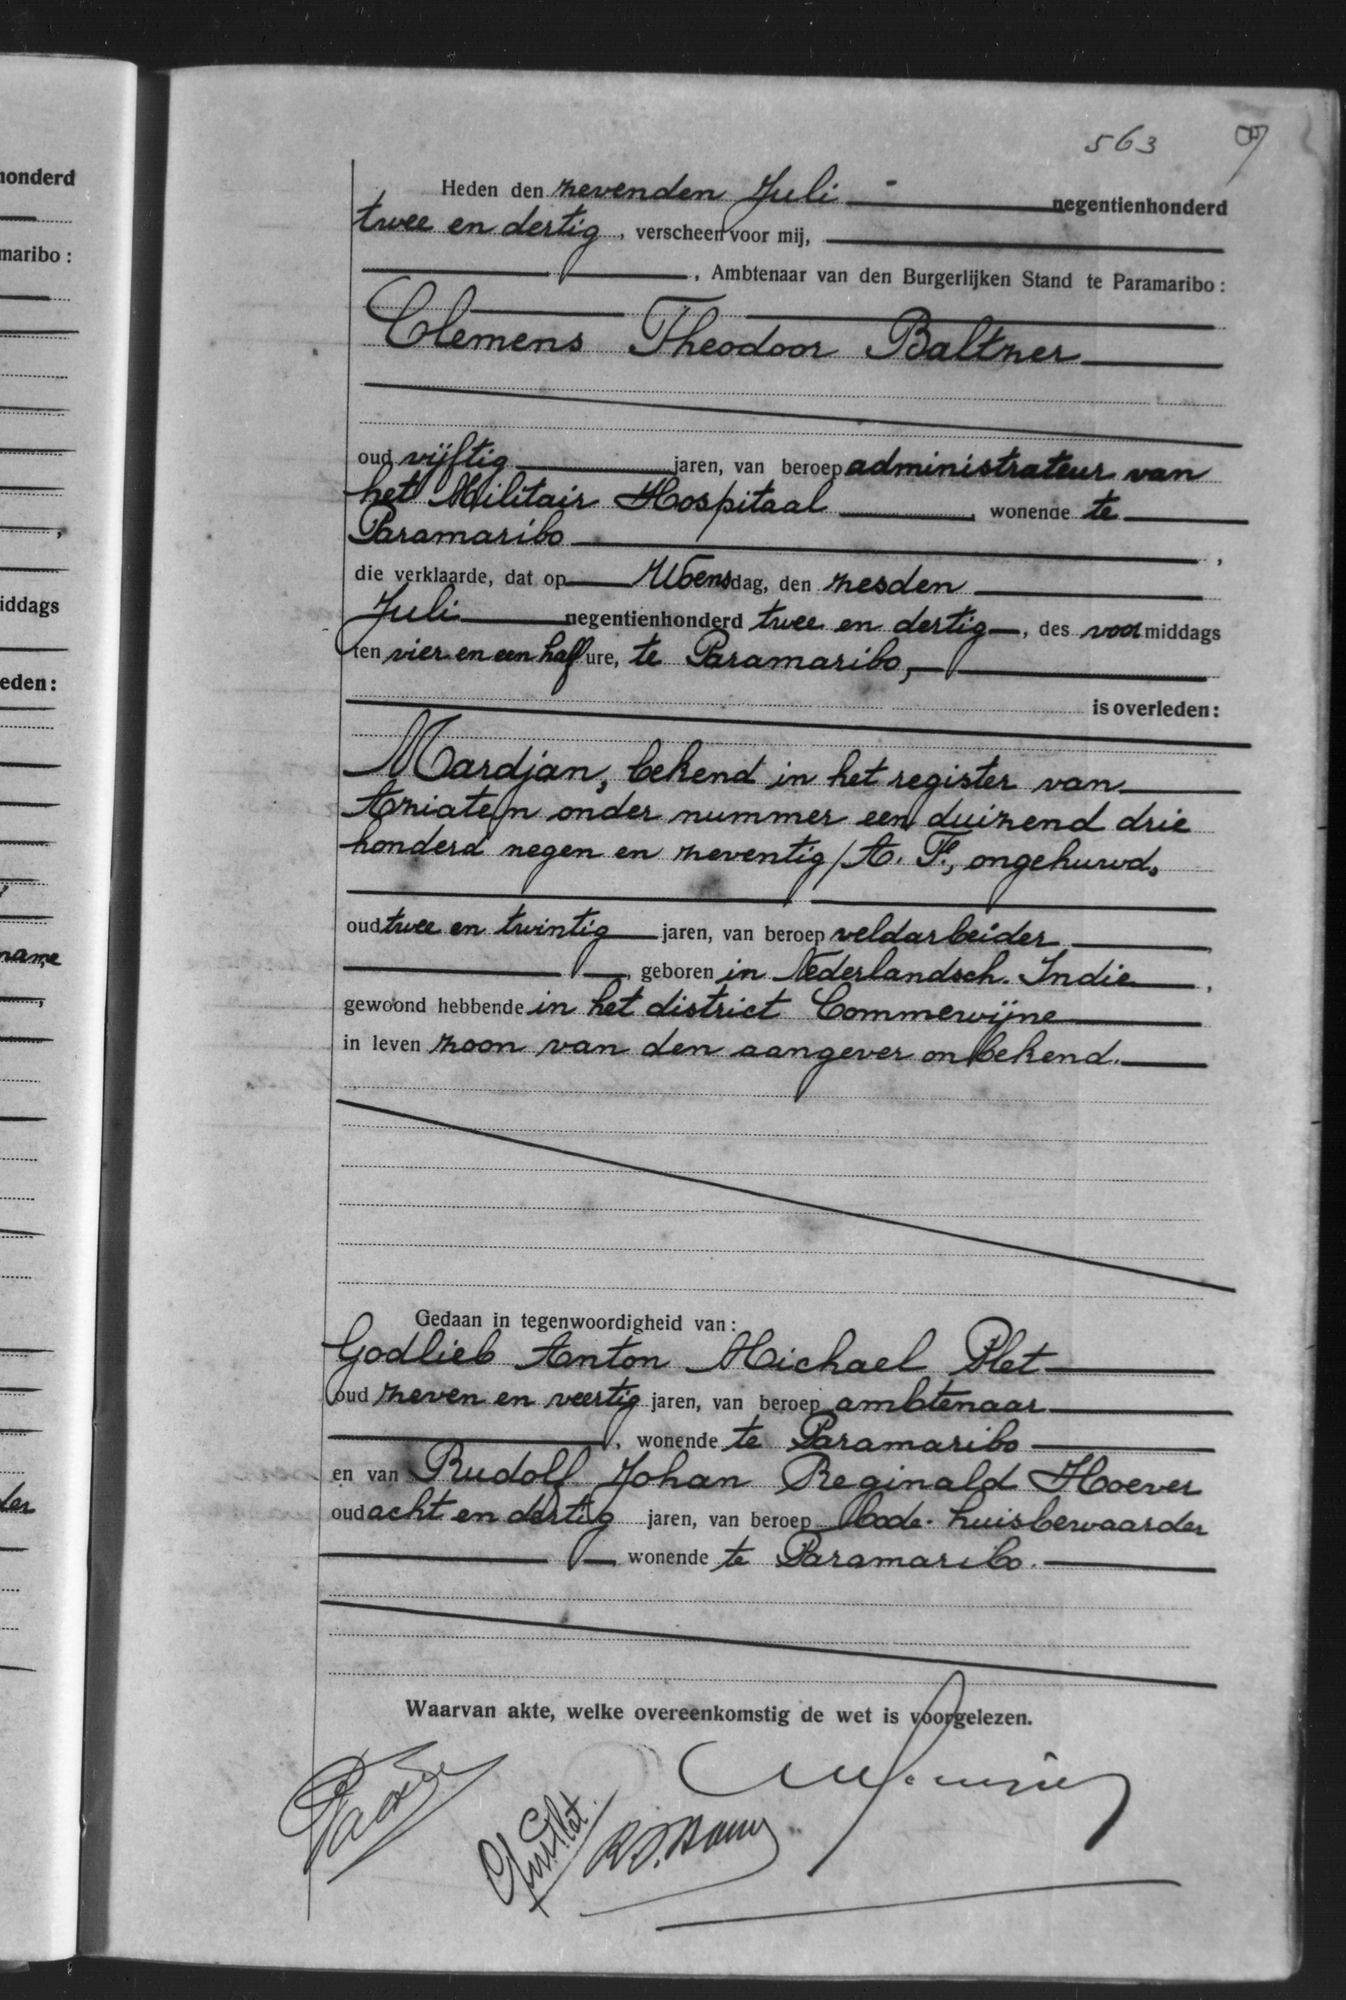 563
Heden den zevenden Juli negentienhonderd
twee en dertig, verscheen voor mij,
, Ambtenaar van den Burgerlijken Stand te Paramaribo:
Clemens Theodoor Baltzer
oud vijftig jaren, van beroep administrateur van
het Militair Hospitaal, wonende te
Paramaribo,
die verklaarde, dat op Woensdag, den zesden
Juli negentienhonderd twee en dertig, des voormiddags
ten vier en een half ure, te Paramaribo,
is overleden:
Mardjan, bekend in het register van
Aziaten onder nummer een duizend drie
honderd negen en zeventig/A. F., ongehuwd,
oud twee en twintig jaren, van beroep veldarbeider
, geboren in Nederlandsch-Indie,
gewoond hebbende in het district Commewijne
in leven zoon van den aangever onbekend.
Gedaan in tegenwoordigheid van:
Godlieb Anton Michael Plet
oud zeven en veertig jaren, van beroep ambtenaar
, wonende te Paramaribo
en van Rudolf Johan Reginald Hoever
oud acht en dertig jaren, van beroep bode-huisbewaarder
wonende te Paramaribo.
Waarvan akte, welke overeenkomstig de wet is voorgelezen.
honderd
maribo:
,
iddags
eden:
name
,
der